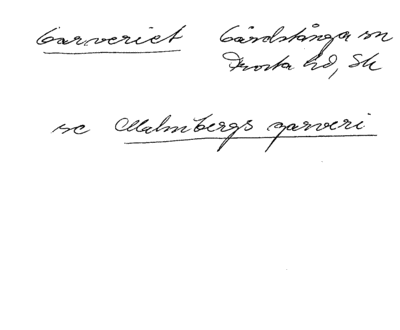 Garveriet Gårdstånga sn
Frosta hd, Sk
se Malmbergs garveri